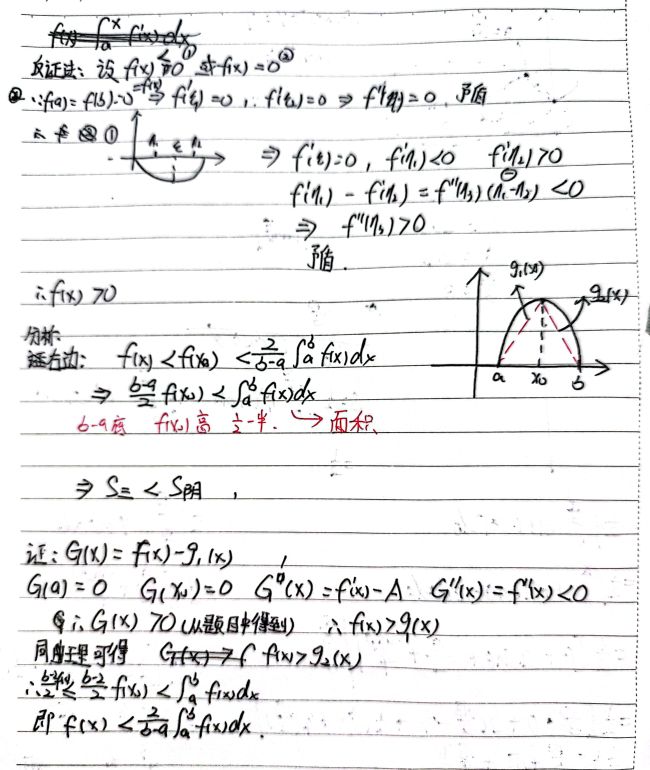 f(x) ∫ₐˣ f'(x)dx
反证法: 设 f(x)<0① 或 f(x)=0②
② ∵f(a)=f(b)=0=f(x) ⇒ f'(ξ₁)=0, f'(ξ₂)=0 ⇒ f''(η)=0 矛盾
①
η₁ ξ η₂
⇒ f'(ξ)=0, f'(η₁)<0 f'(η₂)>0
f'(η₁) - f'(η₂) = f''(η₃)(η₁-η₂) <0
⇒ f''(η₃)>0
矛盾.
∴f(x)>0
g₁(x) g₂(x)
a x₀ b
分析
证右边: f(x)<f(x₀) < 2/(b-a) ∫ₐᵇ f(x)dx
⇒ (b-a)/2 f(x₀) < ∫ₐᵇ f(x)dx
b-a底 f(x₀)高 1/2一半. → 面积
⇒ S三 < S阴,
证: G(x) = f(x)-g₁(x)
G(a)=0 G(x₀)=0 G'(x)=f'(x)-A G''(x)=f''(x)<0
∴G(x)>0 (从题目中得到) ∴f(x)>g(x)
同理可得 G(x)>f f(x)>g₂(x)
∴ f(x₀) < ∫ₐᵇ f(x)dx
即 f(x) < 2/(b-a) ∫ₐᵇ f(x)dx.